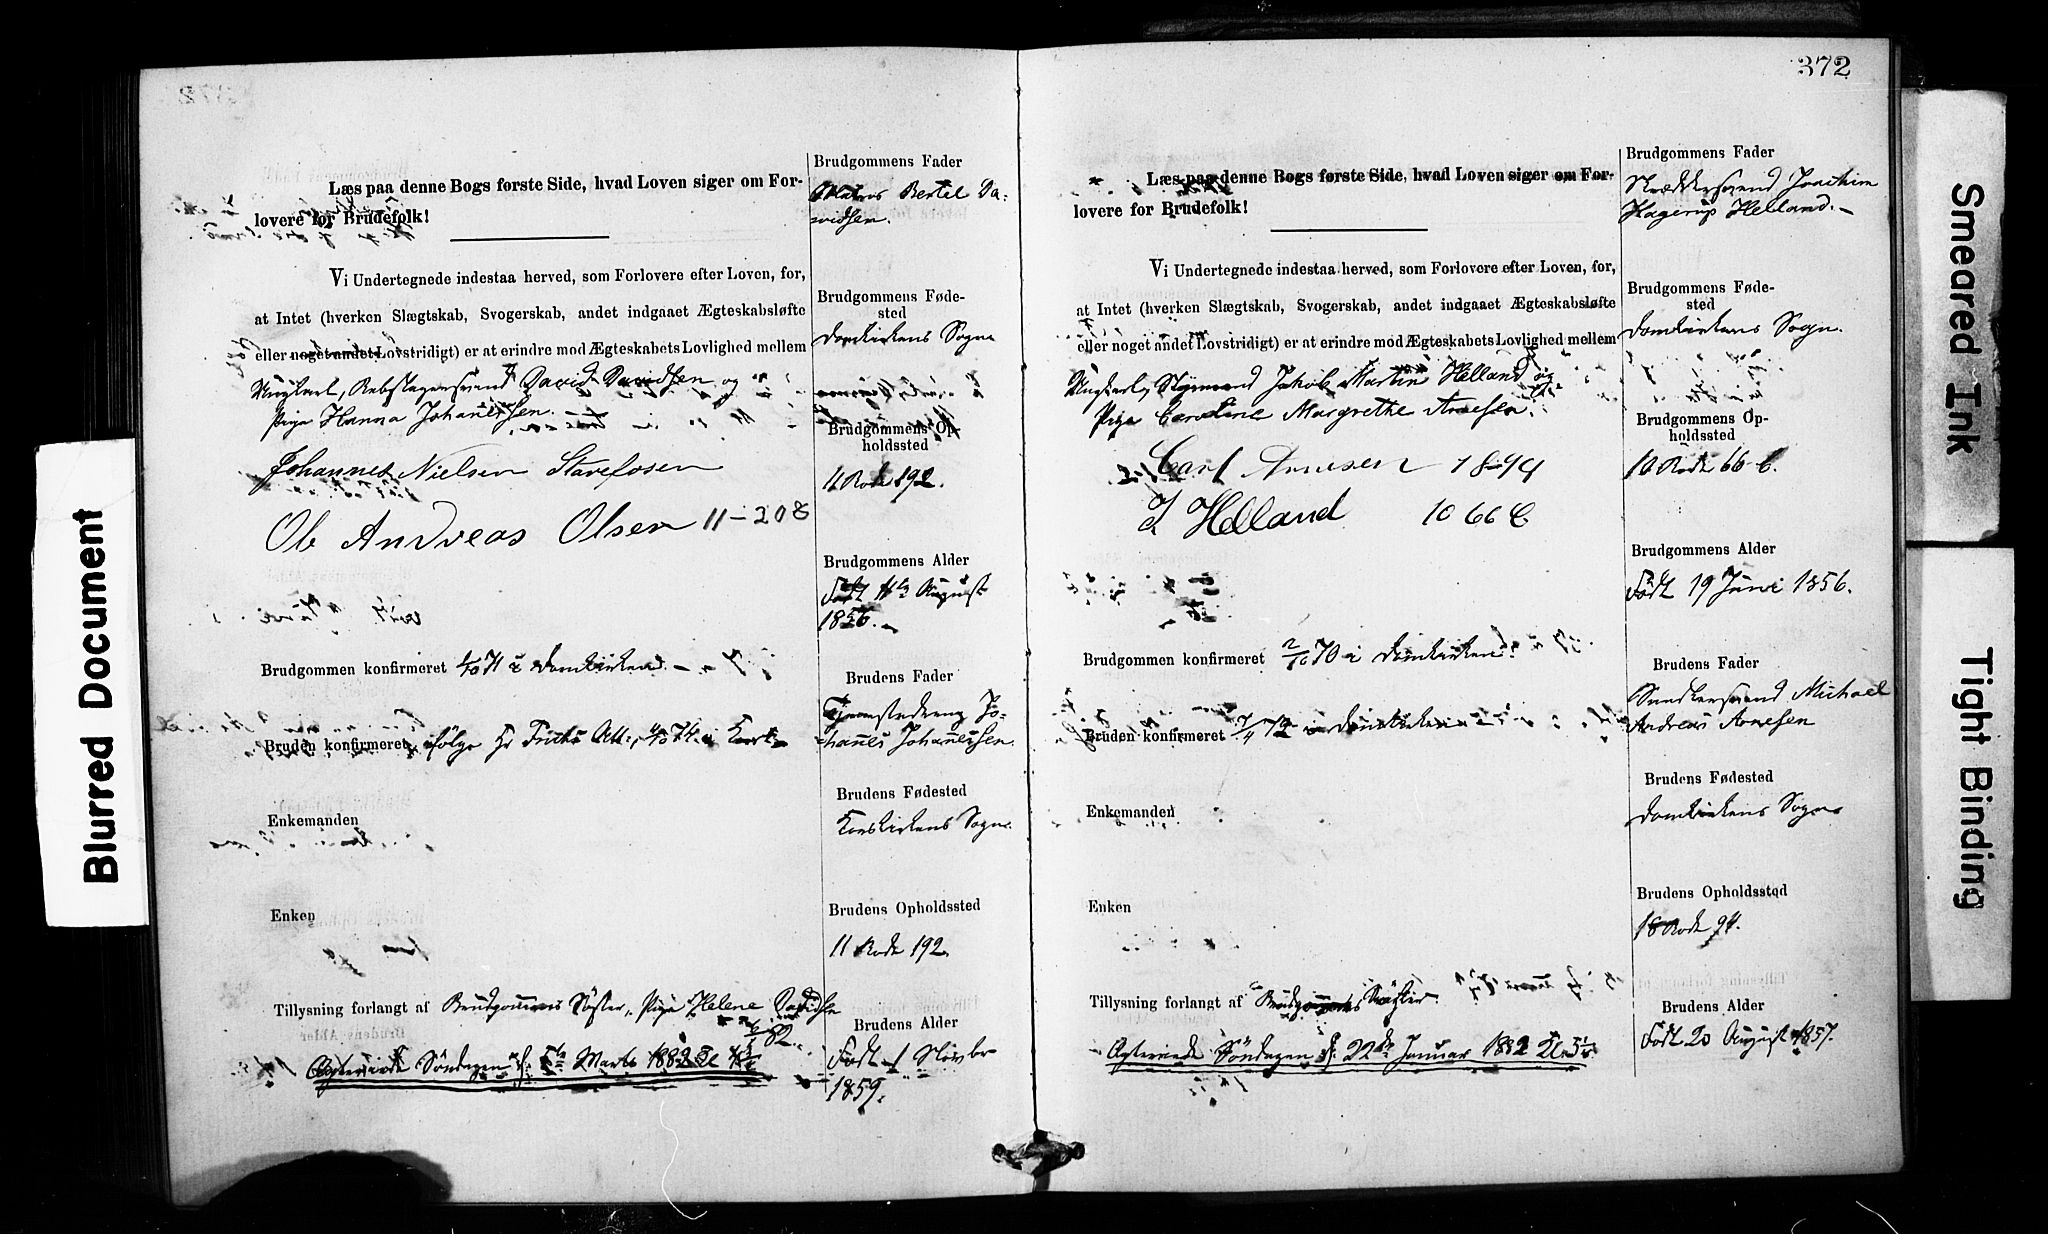 Blurred Document
Læs paa denne Bogs første Side, hvad Loven siger om For-
lovere for Brudefolk!
Vi Undertegnede indestaa herved, som Forlovere efter Loven, for,
at Intet (hverken Slægtskab, Svogerskab, andet indgaaet Ægteskabsløfte
eller noget andet Lovstridigt) er at erindre mod Ægteskabets Lovlighed mellem
Ungkarl, Rebslagersvend David Davidsen og
Pige Hanna Johannessen.
Johannes Nielsen
Ole Andreas Olsen 11-208
Brudgommen konfirmeret 1/10 71 i Domkirken
Bruden konfirmeret ifølge Hr Att., 4/10 74 i
Enkemanden
Enken
Tillysning forlangt af Brudgommens Søster, Pige Helene Davidsen
82.
Agtervie Søndagen d: 5te Marts 1882 Kl
Brudgommens Fader
Bertel Da-
vidsen.
Brudgommens Føde-
sted
Domkirkens Sogn
Brudgommens Op-
holdssted
11 Rode 192.
Brudgommens Alder
Født August
1856.
Brudens Fader
Jo-
hannes Johannessen.
Brudens Fødested
Korskirkens Sogn.
Brudens Opholdssted
11 Rode 192.
Brudens Alder
Født
1859.
372
Læs paa denne Bogs første Side, hvad Loven siger om For-
lovere for Brudefolk!
Vi Undertegnede indestaa herved, som Forlovere efter Loven, for,
at Intet (hverken Slægtskab, Svogerskab, andet indgaaet Ægteskabsløfte
eller noget andet Lovstridigt) er at erindre mod Ægteskabets Lovlighed mellem
Ungkarl, Styrmand Jakob Martin Helland og
Pige Caroline Margrethe Arnesen.
Carl Arnesen 18-94
J. Helland 10 66 C
Brudgommen konfirmeret 2/10 70 i Domkirken
Bruden konfirmeret 7/4 72 i Domkirken
Enkemanden
Enken
Tillysning forlangt af Brudgommens Søster.
Søndagen d: 22de Januar 1882 Kl. 5
Brudgommens Fader
Joachim
Hagerup Helland.
Brudgommens Føde-
sted
Domkirkens Sogn.
Brudgommens Op-
holdssted
10 Rode 66 C.
Brudgommens Alder
Født 19 Juni 1856.
Brudens Fader
Michael
Andreas Arnesen
Brudens Fødested
Domkirkens Sogn
Brudens Opholdssted
18 Rode 94.
Brudens Alder
Født 20 August 1857.
Smeared Ink
Tight Binding